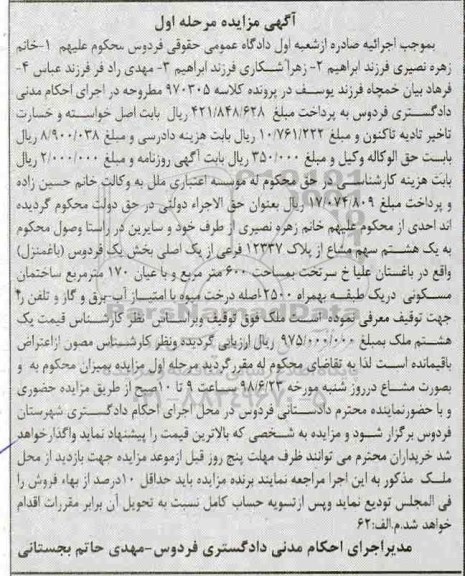 آگهی مزایده مرحله اول
بموجب اجرائیه صادره ازشعبه اول دادگاه عمومی حقوقی فردوس محکوم علیهم ۱-خانم
زهره نصیری فرزند ابراهیم ۲- زهرا شکاری فرزند ابراهیم ۳- مهدی راد فر فرزند عباس ۴-
فرهاد بیان خمچاه فرزند یوسف در پرونده کلاسه ۹۷۰۳۰۵ مطروحه در اجرای احکام مدنی
دادگستری فردوس به پرداخت مبلغ ۴۲۱/۸۴۸/۶۲۸ ریال بابت اصل خواسته و خسارت
تاخیر تادیه تاکنون و مبلغ ۱۰/۷۶۱/۲۲۲ ریال بابت هزینه دادرسی و مبلغ ۸/۹۰۰/۰۳۸ ریال
بابت حق الوکاله وکیل و مبلغ ۳۵۰/۰۰۰ ریال بابت آگهی روزنامه و مبلغ ۲/۰۰۰/۰۰۰ ریال
بابت هزینه کارشناسی در حق محکوم له مؤسسه اعتباری ملل به وکالت خانم حسین زاده
و پرداخت مبلغ ۱۷/۰۷۴/۸۰۹ ریال بعنوان حق الاجراء دولتی در حق دولت محکوم گردیده
اند احدی از محکوم علیهم خانم زهره نصیری از طرف خود و سایرین در راستا وصول محکوم
به یک هشتم سهم مشاع از پلاک ۱۲۳۳۷ فرعی از یک اصلی بخش یک فردوس (باغمنزل)
واقع در باغستان علیا خ سرتخت بمساحت ۶۰۰ متر مربع و با عیان ۱۷۰ مترمربع ساختمان
مسکونی دریک طبقه بهمراه ۲۵۰۰اصله درخت میوه با امتیاز آب-برق و گاز و تلفن را
جهت توقیف معرفی نموده است ملک فوق توقیف وبراساس نظر کارشناس قیمت یک
هشتم ملک بمبلغ ۹۷۵/۰۰۰/۰۰۰ ریال ارزیابی گردیده ونظر کارشناس مصون ازاعتراض
باقیمانده است لذا به تقاضای محکوم له مقرر گردید مرحله اول مزایده بمیزان محکوم به و
بصورت مشاع درروز شنبه مورخه ۹۸/۶/۲۳ ساعت ۹ تا ۱۰صبح از طریق مزایده حضوری
و با حضورنماینده محترم دادستانی فردوس در محل اجرای احکام دادگستری شهرستان
فردوس برگزار شود و مزایده به شخصی که بالاترین قیمت را پیشنهاد نماید واگذارخواهد
شد خریداران محترم می توانند ظرف مهلت پنج روز قبل ازموعد مزایده جهت بازدید از محل
ملک مذکور به این اجرا مراجعه نمایند برنده مزایده باید حداقل ۱۰درصد از بهاء فروش را
فی المجلس تودیع نماید وپس ازتسویه حساب کامل نسبت به تحویل آن برابر مقررات اقدام
خواهد شد.م.الف:۶۲
مدیراجرای احکام مدنی دادگستری فردوس-مهدی حاتم بجستانی